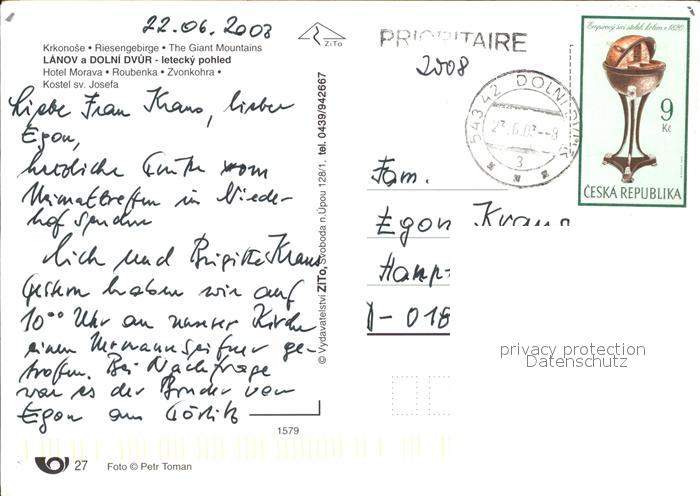 22.06.2003
Krkonoše • Riesengebirge • The Giant Mountains
LÁNOV a DOLNÍ DVŮR - letecký pohled
Hotel Morava • Roubenka • Zvonkohra •
Kostel sv. Josefa
Liebe Frau Kraus, lieber
Egon,
herzliche Grüße vom
Heimattreffen in Nieder-
hof senden
Dich und Brigitte Kraus
Gestern haben wir auf
10⁰⁰ Uhr an unserer Kirche
einen ge-
troffen. Bei Nachfrage
war es der Bruder von
Egon aus Görlitz
1579
27 Foto © Petr Toman
ZiTo
© Vydavatelství ZiTo, Svoboda n.Úpou 128/1, tel. 0439/942667
PRIORITAIRE
2008
543 42 DOLNÍ DVŮR
3
Empírový šicí stolek kolem r. 1820
9
Kč
ČESKÁ REPUBLIKA
Fam.
Egon Kraus
D-018
privacy protection
Datenschutz